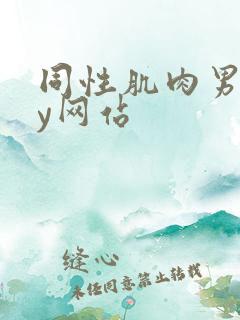 同性肌肉男
y网佔
缝心
未经同意禁止转载